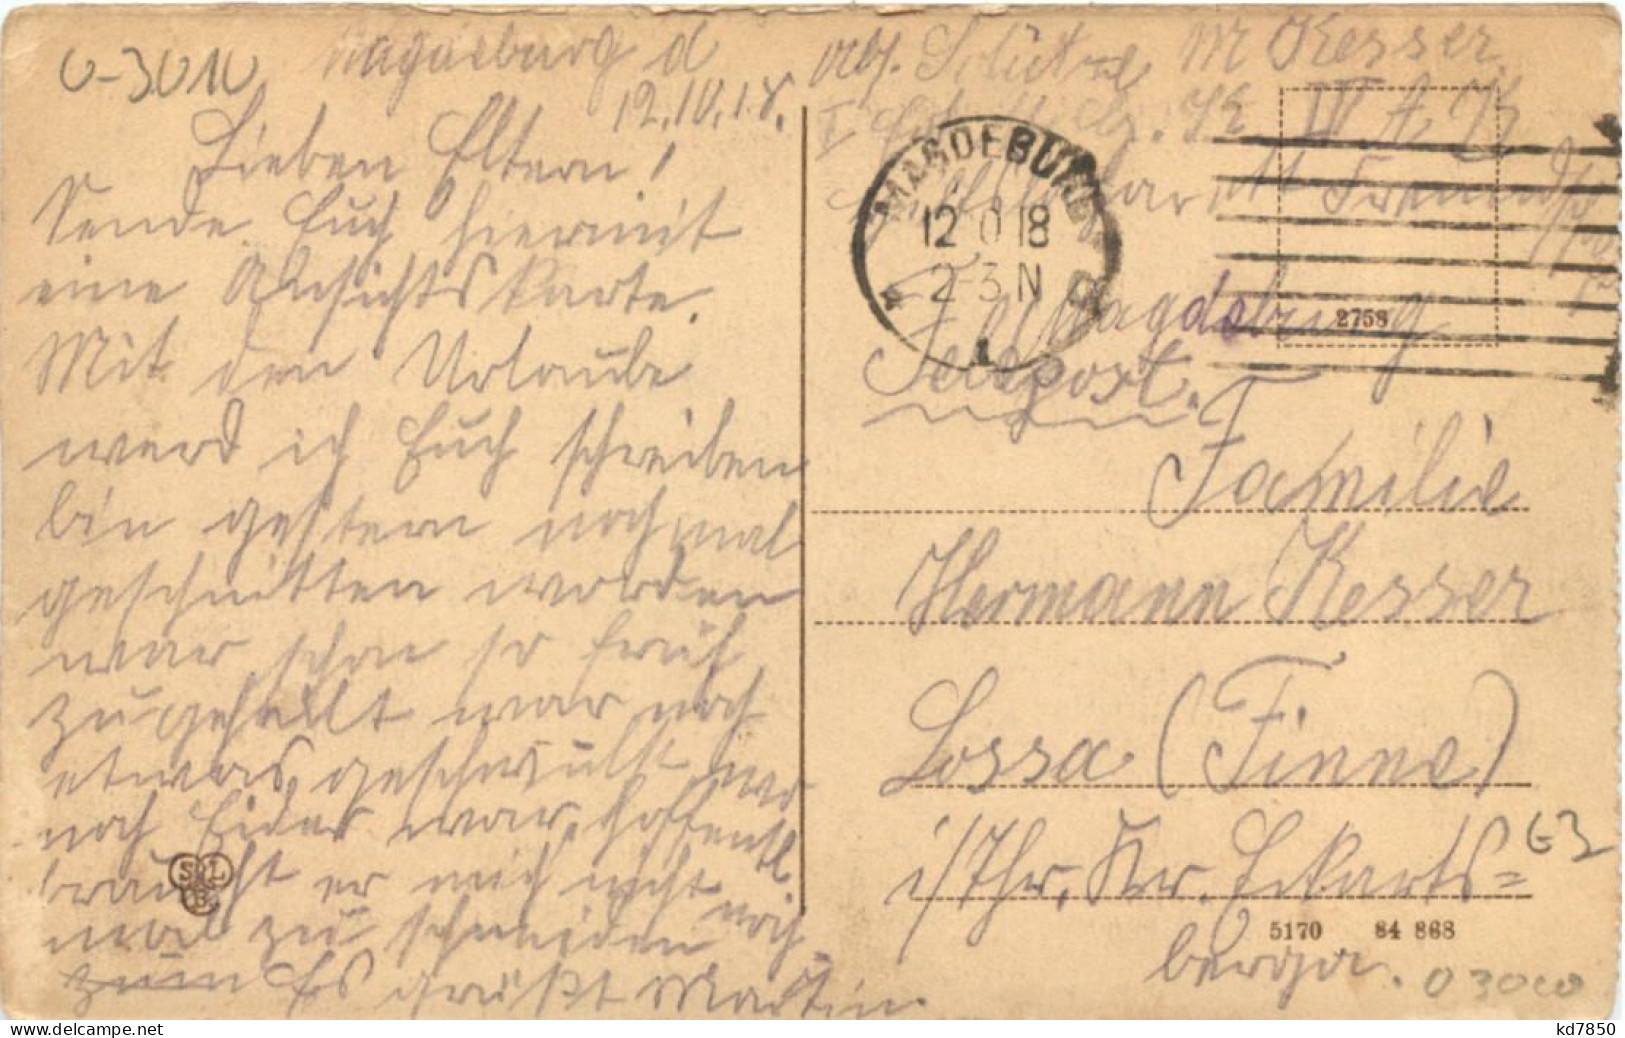 0-3010
Magdeburg d
12.10.18.
Lieben Eltern!
Sende Euch hiermit
eine Ansichtskarte.
Mit den Urlaube
werd ich Euch schreiben
bin gestern noch mal
geschnitten worden
war schon so früh
zugeheilt war noch
etwas geschwulst wo
noch Eider war, hoffentl.
braucht er mich nicht noch
mal zu schneiden
Es grüßt Martin.
SPL
B
Abs. Schütze M Kesser
IV A. K
MAGDEBURG
12 10 18
2-3 N
* 1
Magdeburg
Feldpost.
2758
Familie
Hermann Kesser
Lossa (Finne)
i/Thr. Kr. Eckarts=
berga.
5170 84 868
G3
03000
delcampe.net
kd7850